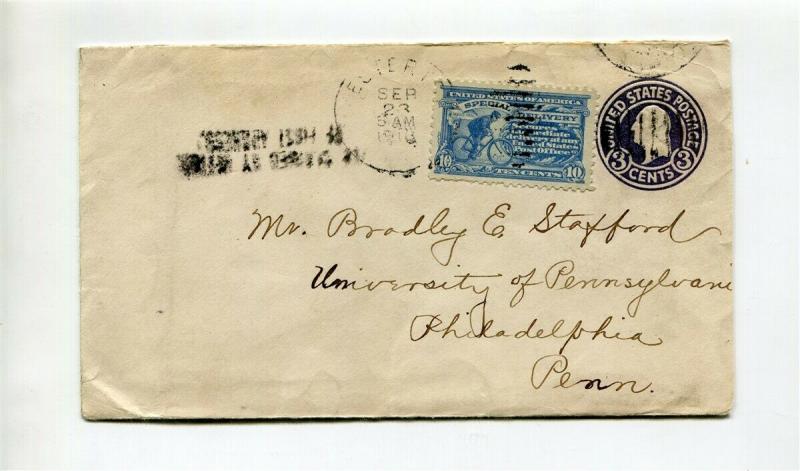 SEP
23
UNITED STATES OF AMERICA
SPECIAL DELIVERY
Secures
immediate
delivery at any
United States
Post Office.
10 TEN CENTS 10
UNITED STATES POSTAGE
3 CENTS 3
Mr. Bradley E. Stafford
University of Pennsylvani
Philadelphia
Penn.